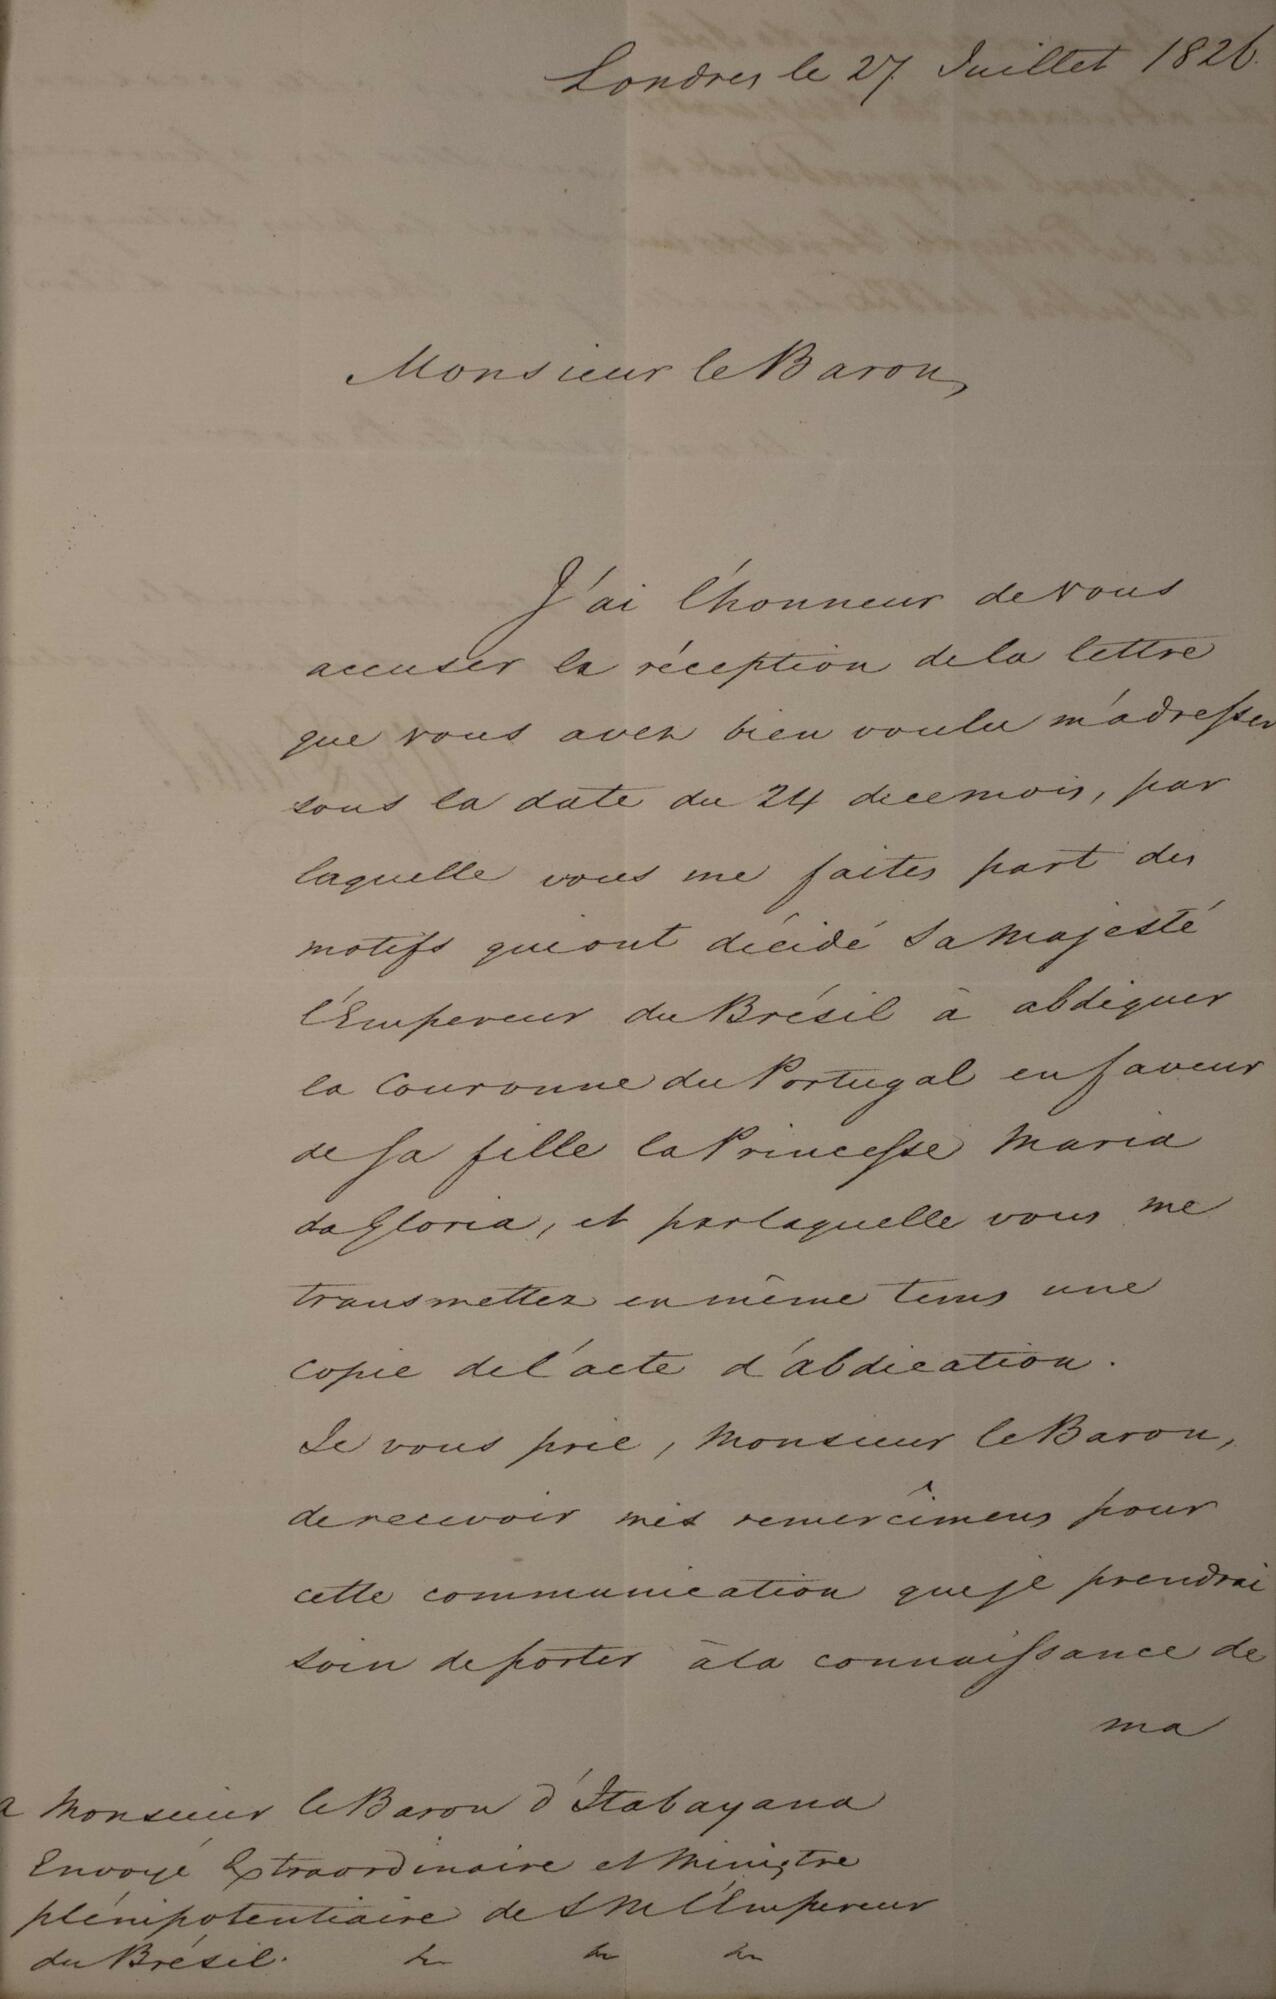 Londres le 27 Juillet 1826.
Monsieur le Baron,
J'ai l'honneur de vous
accuser la réception de la lettre
que vous avez bien voulu m'adresser
sous la date du 24 de ce mois, par
laquelle vous me faites part des
motifs qui ont décidé Sa Majesté
l'Empereur du Brésil à abdiquer
la Couronne du Portugal en faveur
de Sa fille la Princesse Maria
da Gloria, et par laquelle vous me
transmettez en même tems une
copie de l'acte d'abdication.
Je vous prie, Monsieur le Baron,
de recevoir mes remercîmens pour
cette communication que je prendrai
soin de porter à la connaissance de
ma
A Monsieur le Baron d'Itabayana
Envoyé Extraordinaire et Ministre
plénipotentiaire de S M l'Empereur
du Brésil.